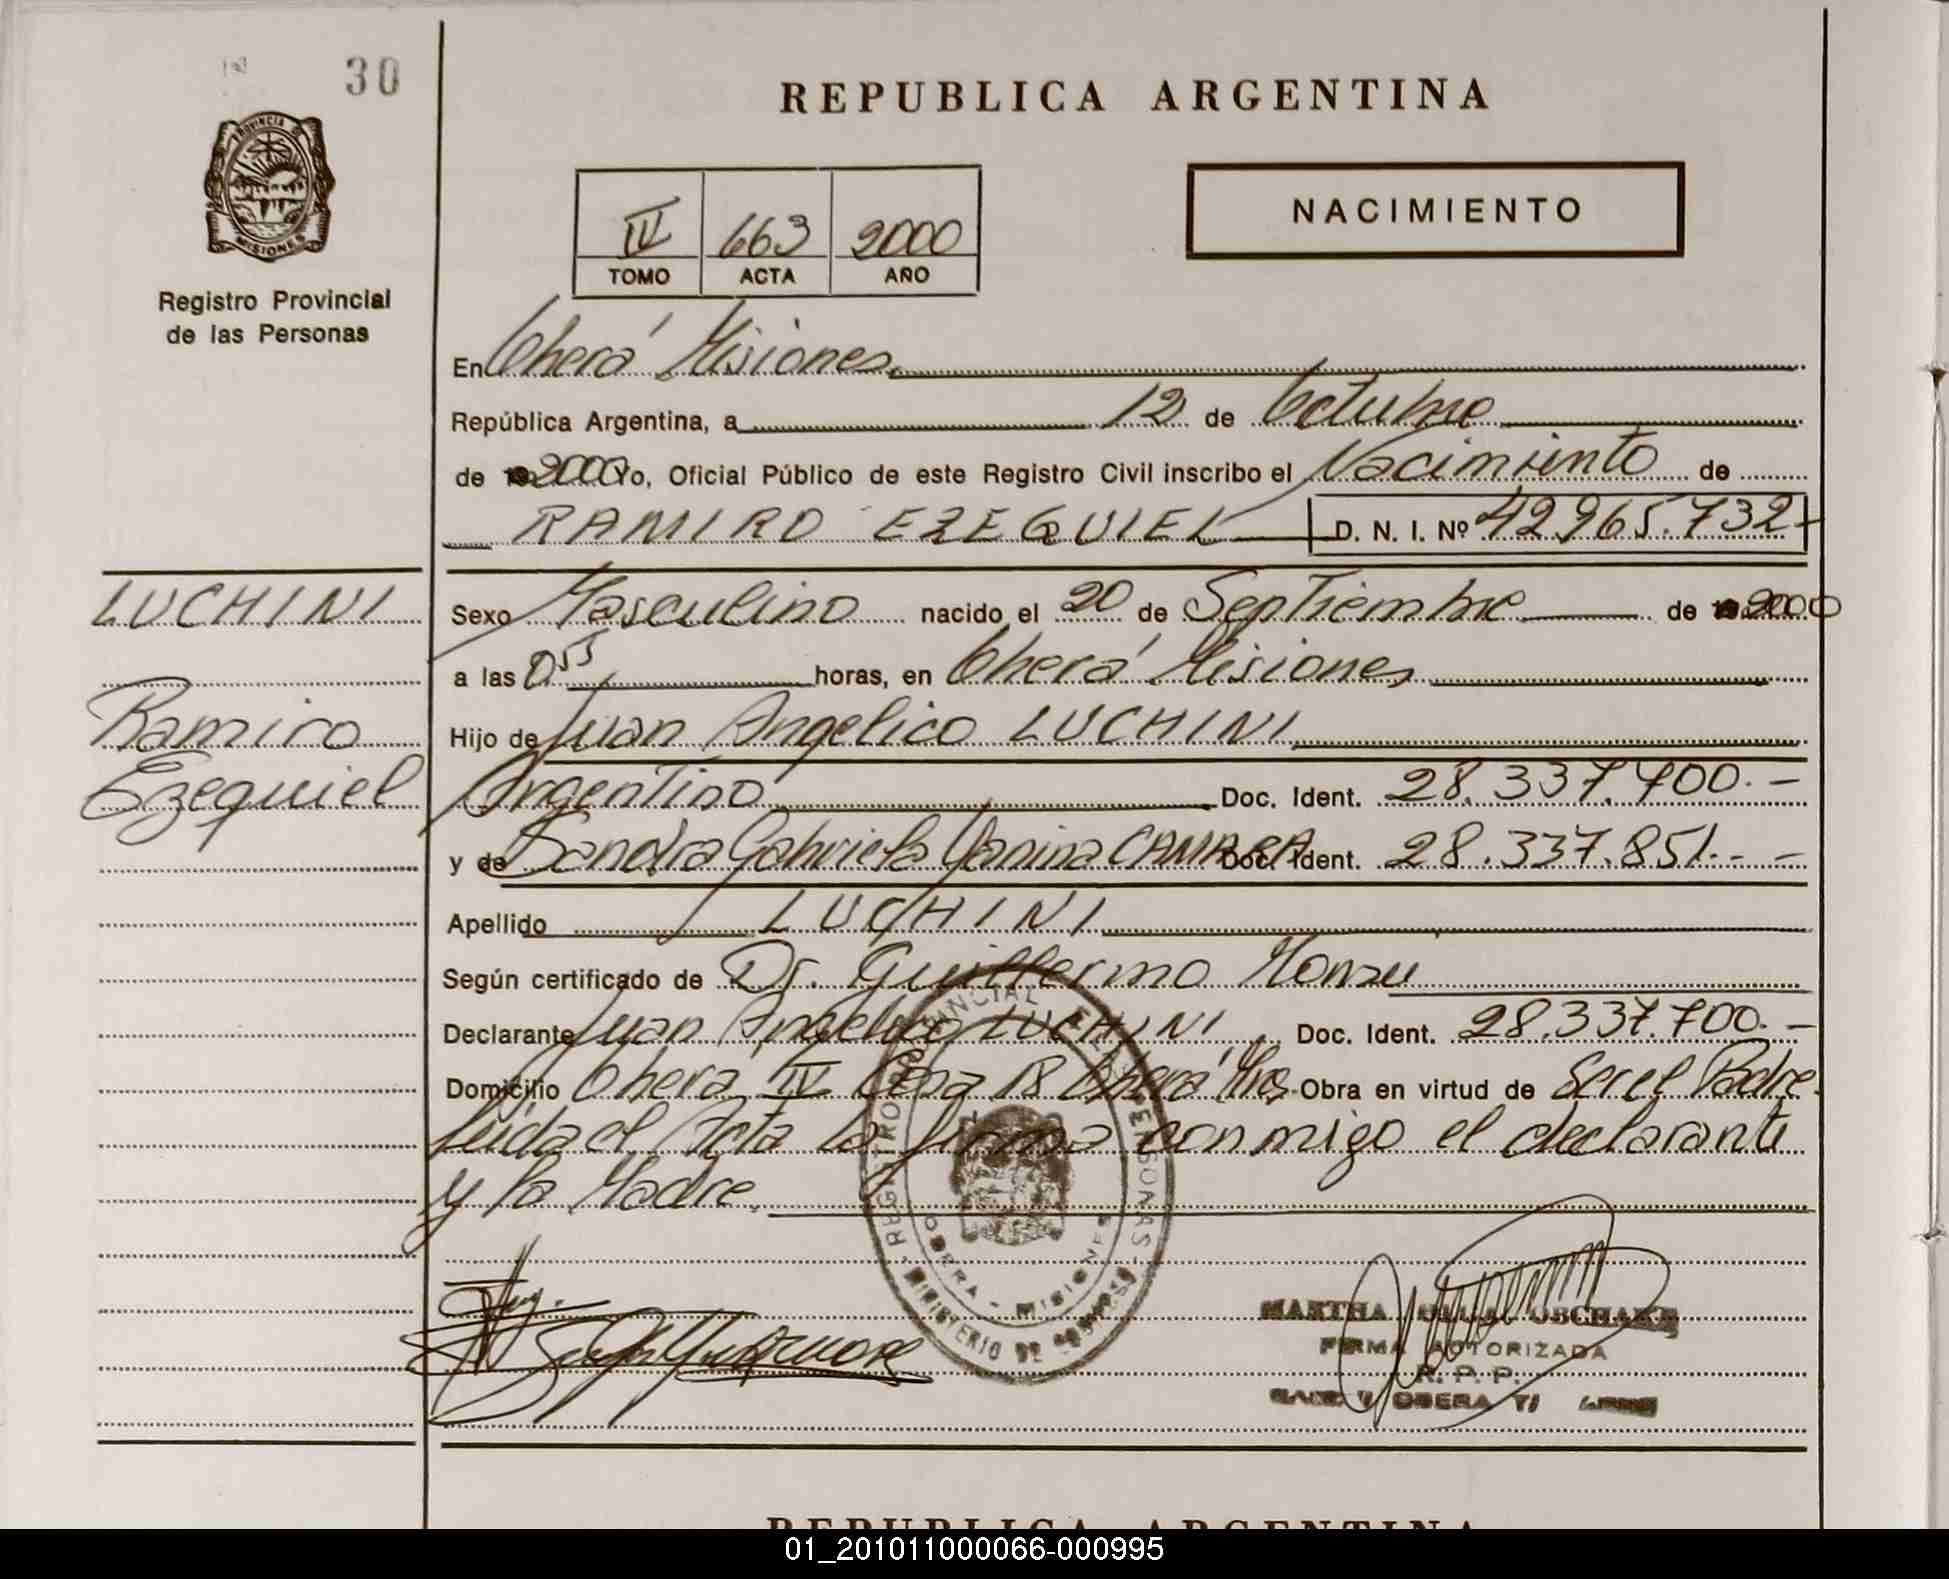 30
PROVINCIA DE
MISIONES
Registro Provincial
de las Personas
REPUBLICA ARGENTINA
IV 663 2000
TOMO ACTA AÑO
NACIMIENTO
En Oberá Misiones.
República Argentina, a 12 de Octubre
de 2000 Yo, Oficial Público de este Registro Civil inscribo el Nacimiento de
RAMIRO EZEQUIEL D. N. I. Nº 42.965.732-
LUCHINI
Ramiro
Ezequiel
Sexo Masculino nacido el 20 de Septiembre de 2000
a las 0,55 horas, en Oberá Misiones
Hijo de Juan Angelico LUCHINI
Argentino Doc. Ident. 28.337.700.-
y de Sandra Gabriela Yanina CAMARA Doc. Ident. 28.337.851.- -
Apellido LUCHINI
Según certificado de Dr. Guillermo Monzu
Declarante Juan Angelico LUCHINI Doc. Ident. 28.337.700.-
Domicilio Oberá IV Casa 18 Oberá Mnes Obra en virtud de Ser el Padre
Leída el Acta la firma conmigo el declarante
y la Madre.
REGISTRO PROVINCIAL DE LAS PERSONAS
OBERA - MISIONES
MINISTERIO DE GOBIERNO
MARTHA OLGA
FIRMA AUTORIZADA
R. P. P.
OBERA
REPUBLICA ARGENTINA
01_201011000066-000995